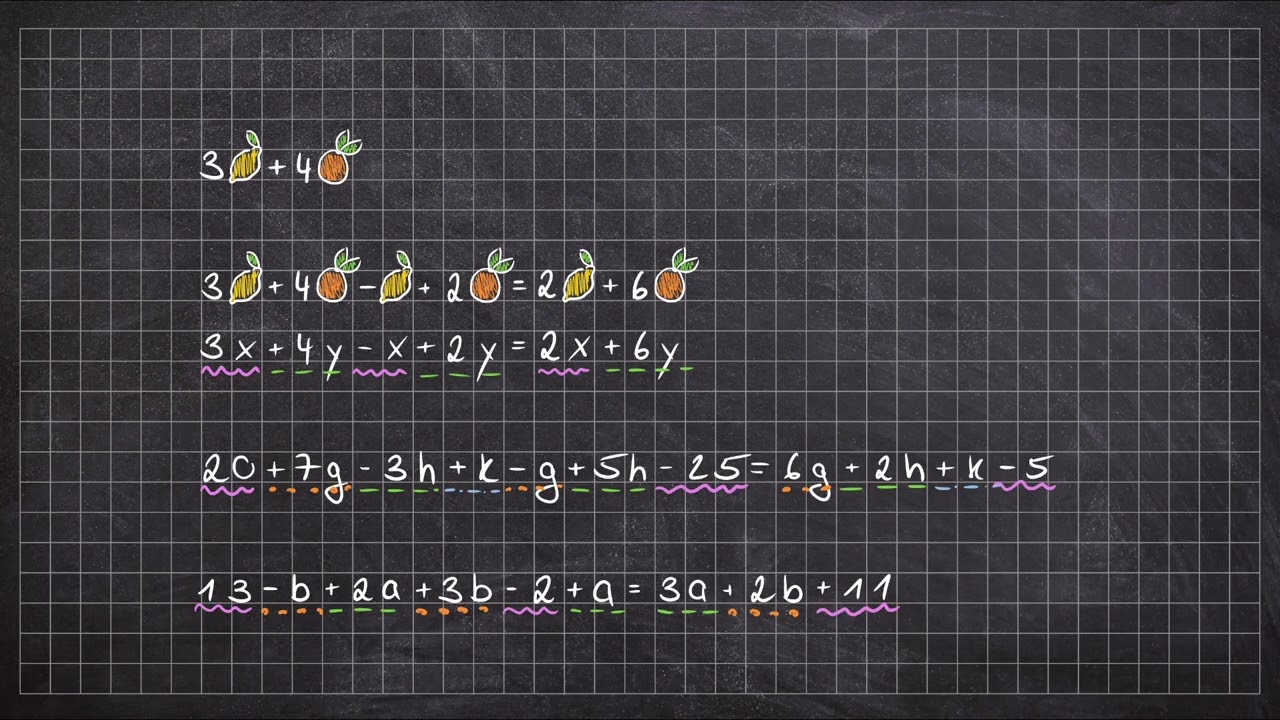 3🍋 + 4🍊
3🍋 + 4🍊 - 🍋 + 2🍊 = 2🍋 + 6🍊
3x + 4y - x + 2y = 2x + 6y
20 + 7g - 3h + k - g + 5h - 25 = 6g + 2h + k - 5
13 - b + 2a + 3b - 2 + a = 3a + 2b + 11